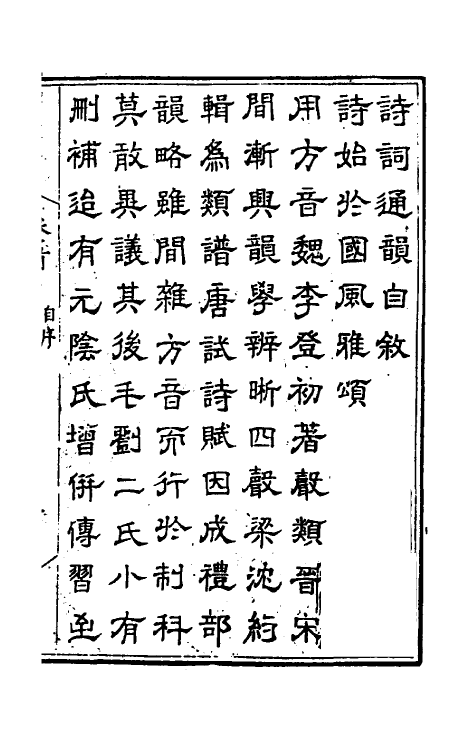 詩詞通韻自敘
詩始於國風雅頌
用方音魏李登初著聲類晉宋
間漸興韻學辨晰四聲梁沈約
輯為類譜唐試詩賦因成禮部
韻略雖間雜方音而行於制科
莫敢異議其後毛劉二氏小有
刪補迨有元陰氏增併傳習至
自序